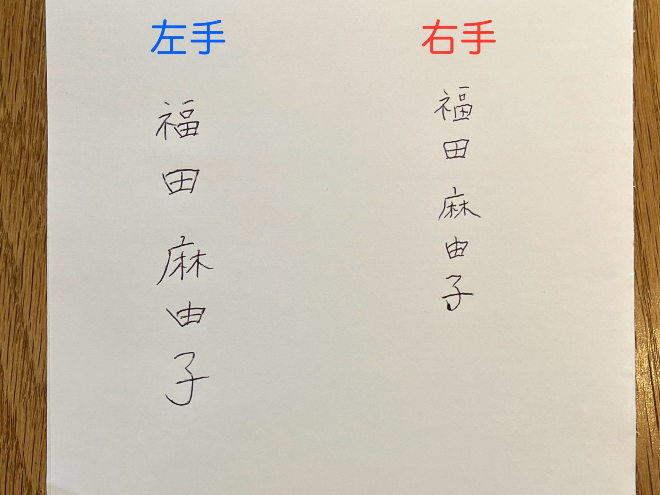 左手
福田麻由子
右手
福田麻由子